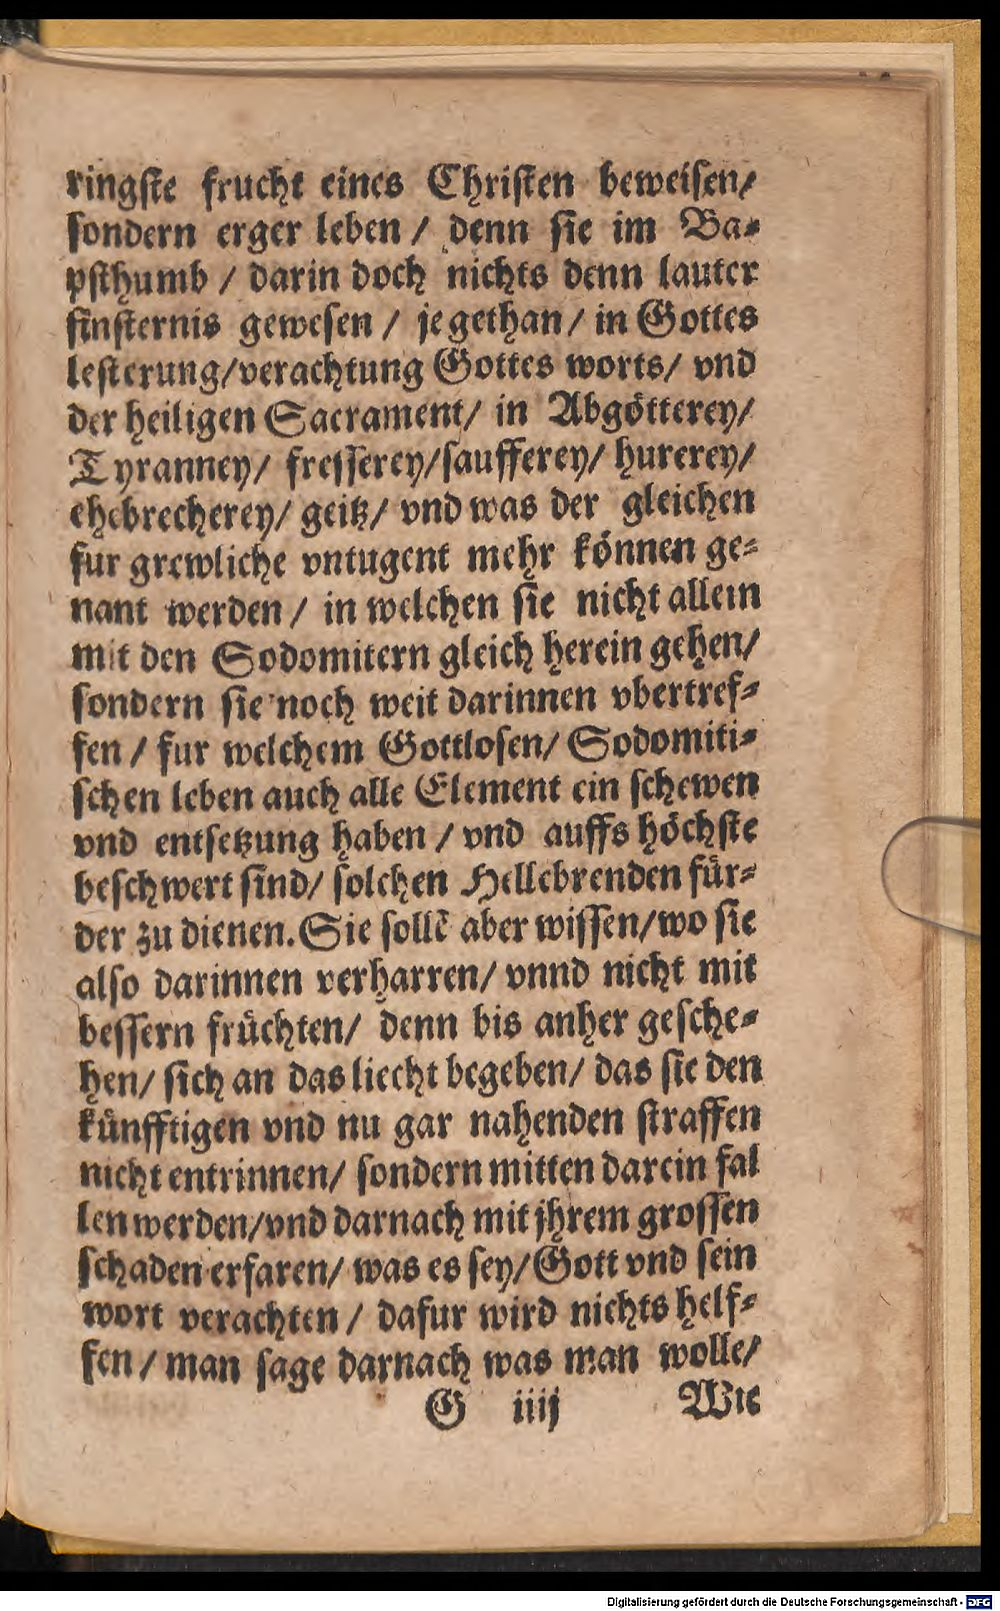 ringſte frucht eines Chriſten beweiſen/
ſondern erger leben / denn ſie im Ba⸗
pſthumb / darin doch nichts denn lauter
finſternis geweſen / je gethan / in Gottes
leſterung/verachtung Gottes worts/ vnd
der heiligen Sacrament/ in Abgötterey/
Tyranney/ freſſerey/ſaufferey/ hurerey/
ehebrecherey/ geitz/ vnd was der gleichen
fur grewliche vntugent mehr können ge⸗
nant werden / in welchen ſie nicht allein
mit den Sodomitern gleich herein gehen/
ſondern ſie noch weit darinnen vbertref⸗
fen / fur welchem Gottloſen/ Sodomiti⸗
ſchen leben auch alle Element ein ſchewen
vnd entſetzung haben / vnd auffs höchſte
beſchwert ſind/ ſolchen Hellebrenden fuͤr⸗
der zu dienen. Sie ſollẽ aber wiſſen/wo ſie
alſo darinnen verharren/ vnnd nicht mit
beſſern fruͤchten/ denn bis anher geſche⸗
hen/ ſich an das liecht begeben/ das ſie den
kuͤnfftigen vnd nu gar nahenden ſtraffen
nicht entrinnen/ ſondern mitten darein fal
len werden/vnd darnach mit jhrem groſſen
ſchaden erfaren/ was es ſey/ Gott vnd ſein
wort verachten / dafur wird nichts helf⸗
fen / man ſage darnach was man wolle/
G iiij Wie
Digitalisierung gefördert durch die Deutsche Forschungsgemeinschaft - DFG